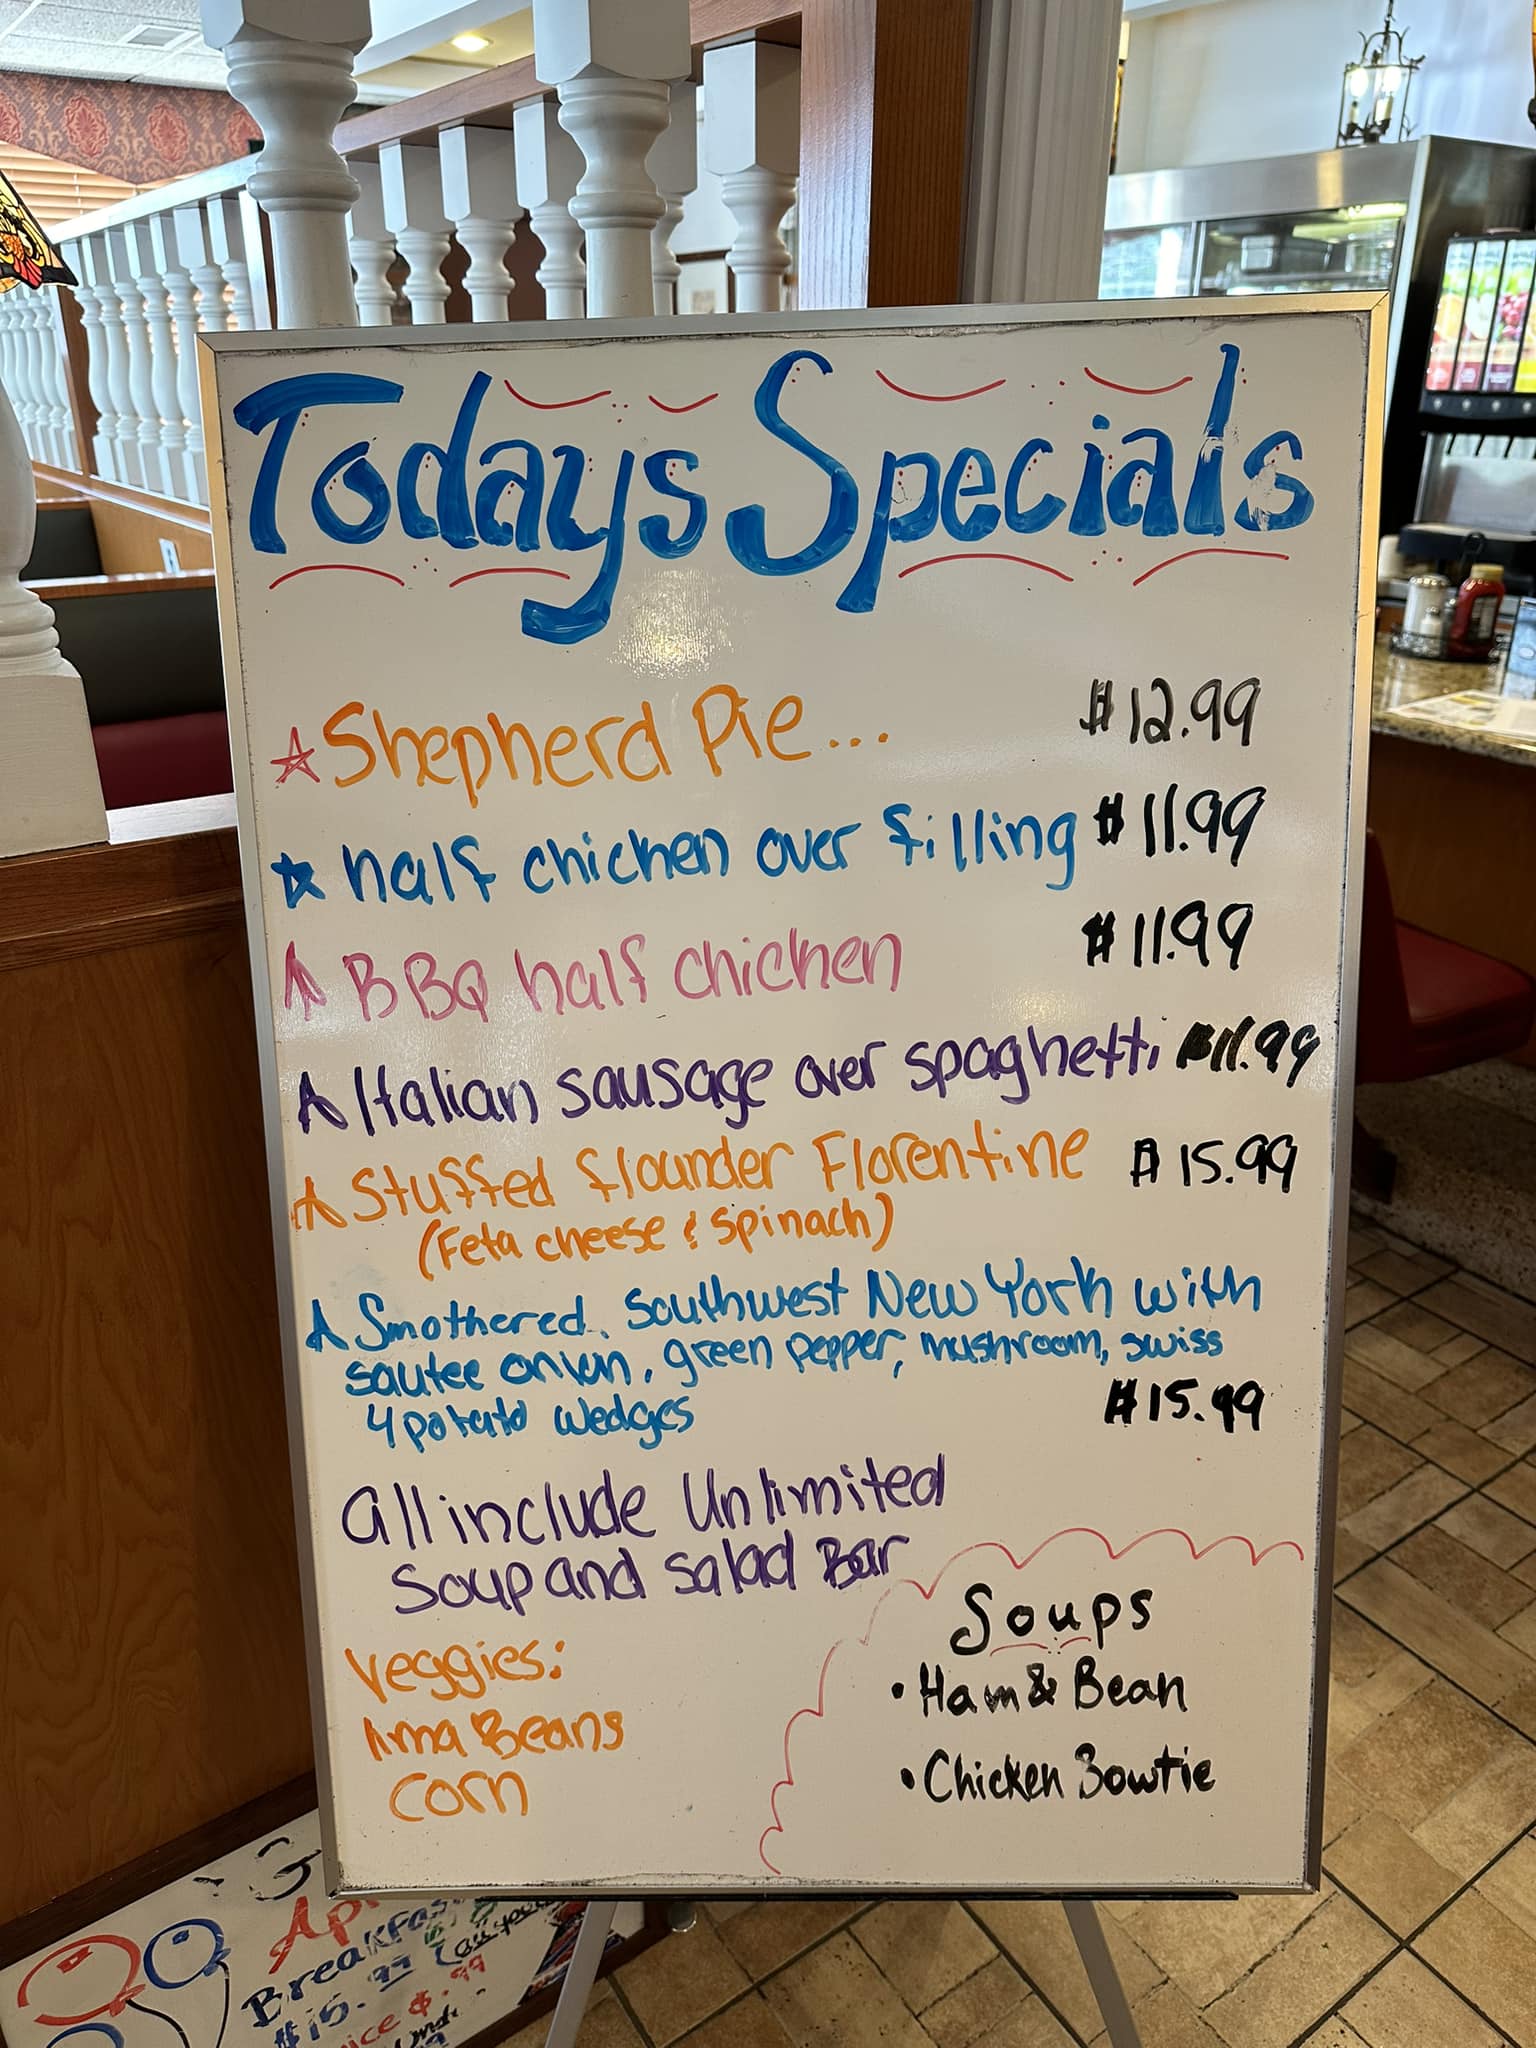 Todays Specials
Shepherd Pie... $12.99
half chicken over filling $11.99
BBQ half chicken $11.99
Italian sausage over spaghetti $11.99
Stuffed flounder Florentine $15.99
(Feta cheese & spinach)
Smothered. Southwest New York with
sautee onion, green pepper, mushroom, swiss
4 potato wedges $15.99
all include Unlimited
Soup and salad Bar
Veggies:
lima Beans
corn
Soups
• Ham & Bean
• Chicken Bowtie
Breakfas
$15.99